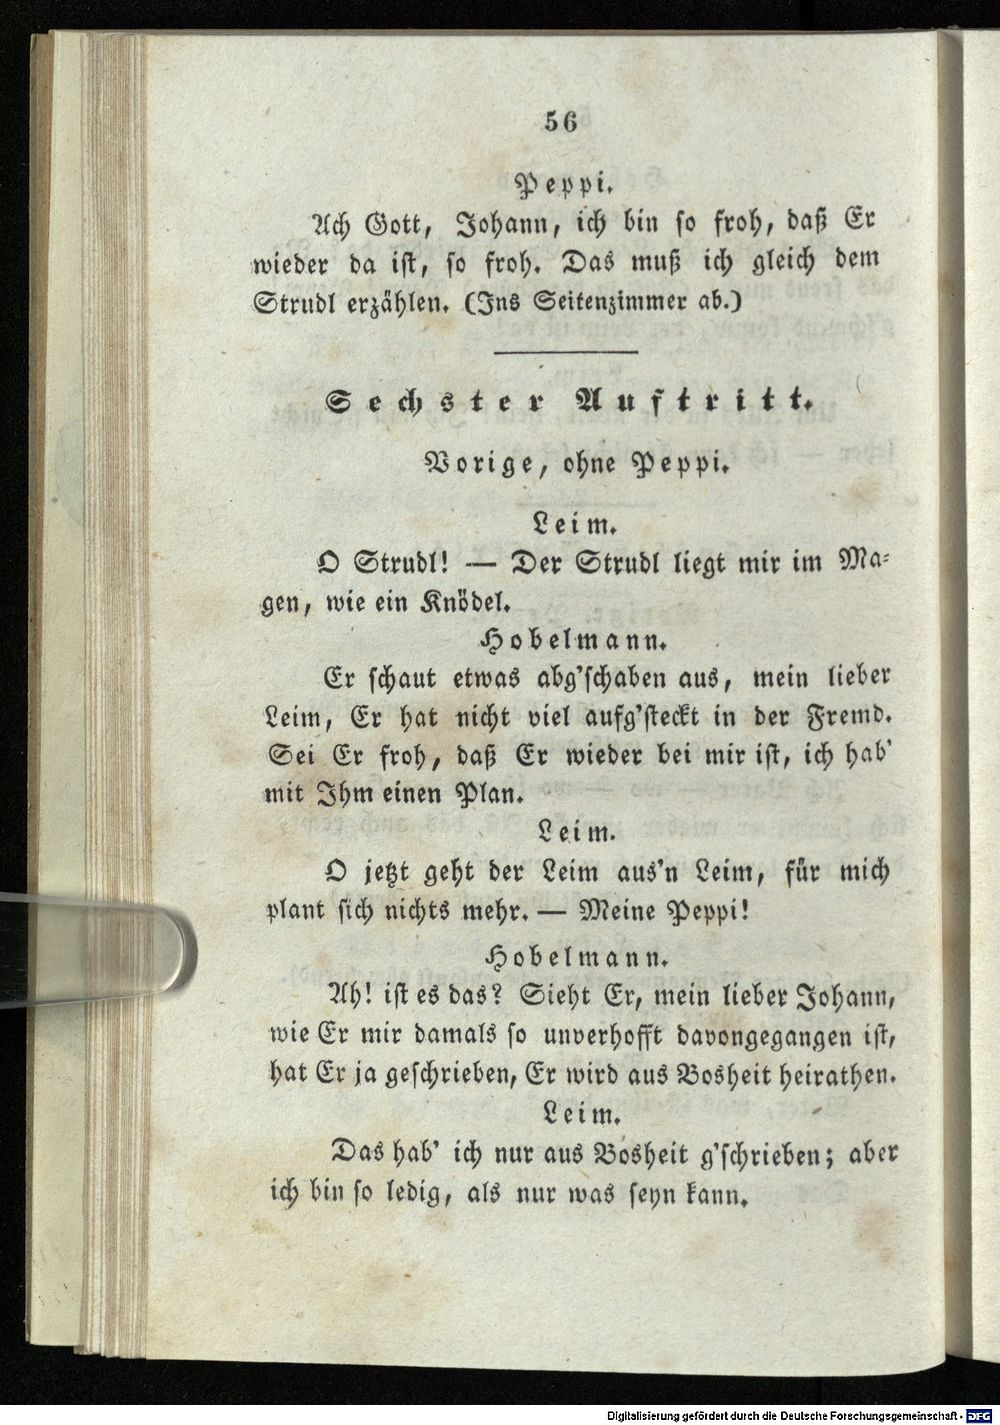 56
Peppi.
Ach Gott, Johann, ich bin so froh, daß Er
wieder da ist, so froh. Das muß ich gleich dem
Strudl erzählen. (Ins Seitenzimmer ab.)
Sechster Auftritt.
Vorige, ohne Peppi.
Leim.
O Strudl! — Der Strudl liegt mir im Ma-
gen, wie ein Knödel.
Hobelmann.
Er schaut etwas abg'schaben aus, mein lieber
Leim, Er hat nicht viel aufg'steckt in der Fremd.
Sei Er froh, daß Er wieder bei mir ist, ich hab'
mit Ihm einen Plan.
Leim.
O jetzt geht der Leim aus'n Leim, für mich
plant sich nichts mehr. — Meine Peppi!
Hobelmann.
Ah! ist es das? Sieht Er, mein lieber Johann,
wie Er mir damals so unverhofft davongegangen ist,
hat Er ja geschrieben, Er wird aus Bosheit heirathen.
Leim.
Das hab' ich nur aus Bosheit g'schrieben; aber
ich bin so ledig, als nur was seyn kann.
Digitalisierung gefördert durch die Deutsche Forschungsgemeinschaft - DFG